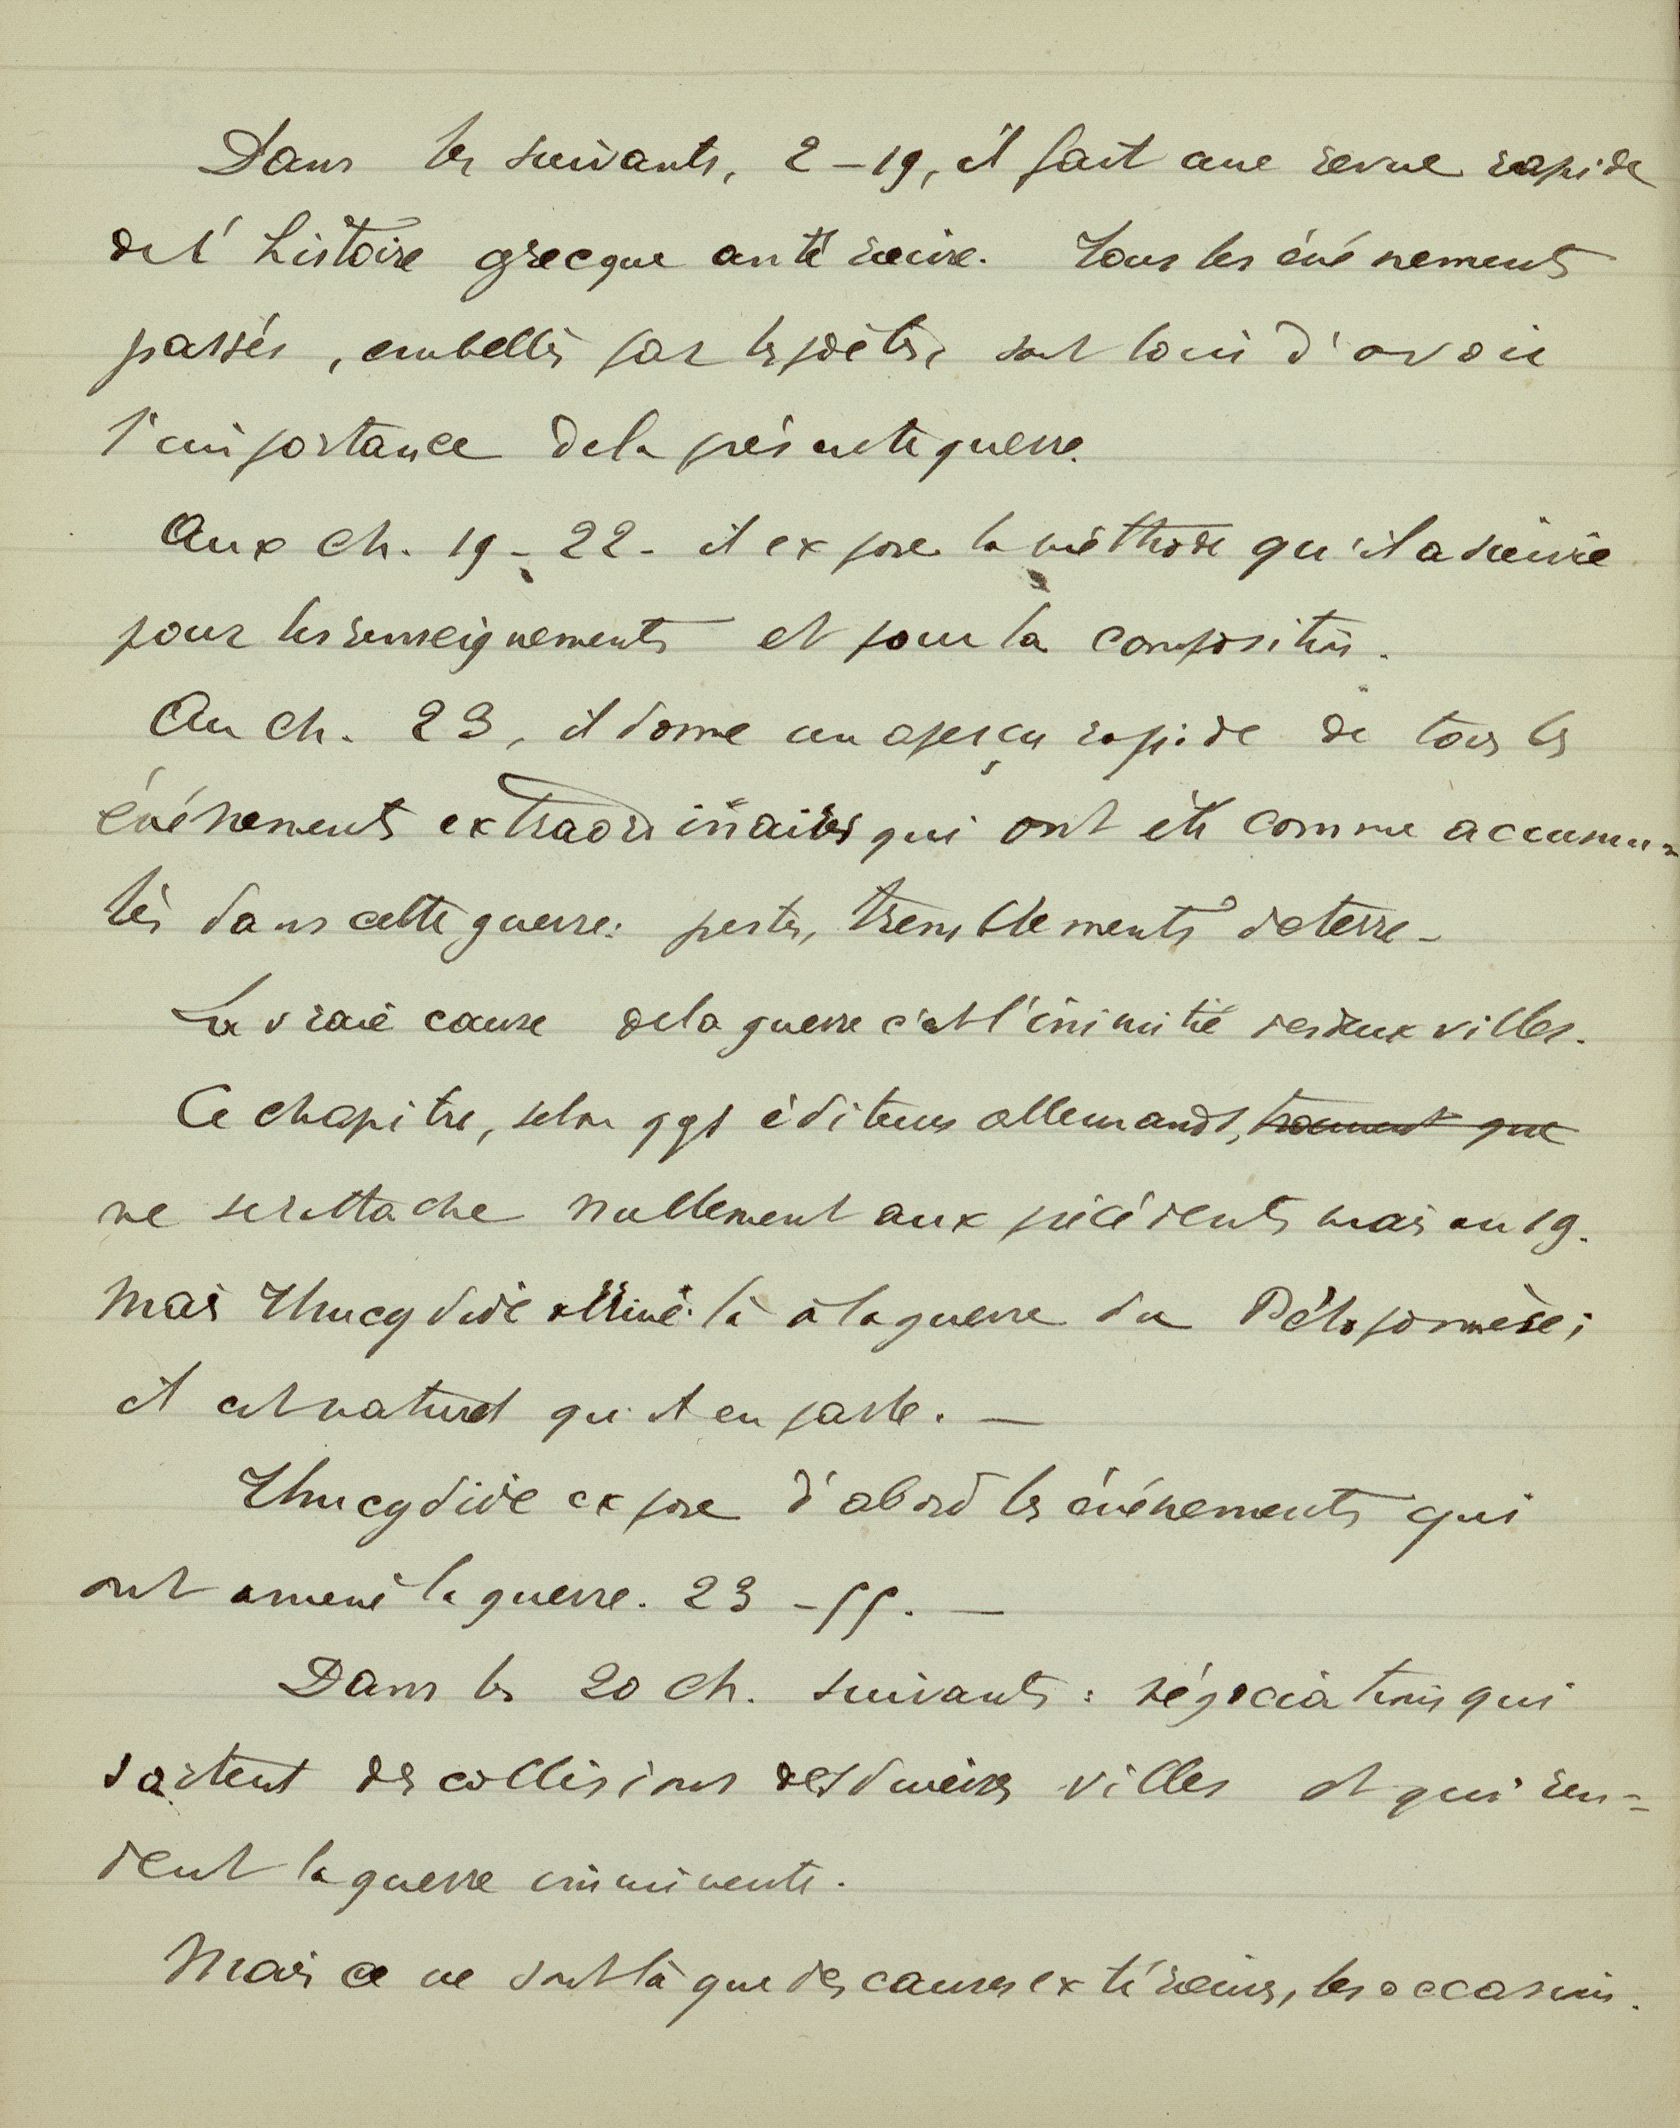 Dans les suivants, 2-19, il fait une revue rapide
de l'histoire grecque antérieure. Tous les événements
passés, embellis par les poètes, sont loin d'avoir
l'importance de la présente guerre.
Aux ch. 19-22 - il expose la méthode qu'il a suivie
pour les renseignements et pour la composition.
Au ch. 23, il donne un aperçu rapide de tous les
événements extraordinaires qui ont été comme accumu-
lés dans cette guerre: pestes, tremblements de terre -
La vraie cause de la guerre c'est l'inimitié des deux villes.
Ce chapitre, selon qqs éditeurs allemands, trouvent que
ne se rattache nullement aux précédents mais au 19.
Mais Thucydide arrive là à la guerre du Péloponnèse;
il est naturel qu'il en parle. -
Thucydide expose d'abord les événements qui
ont amené la guerre. 23-55. -
Dans les 20 ch. suivants: négociations qui
sortent des collisions des diverses villes et qui ren-
dent la guerre imminente.
Mais ce ne sont là que des causes extérieures, les occasions.